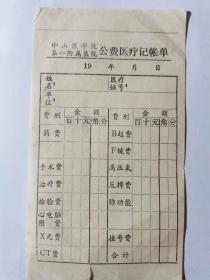 中山医学院
第一附属医院 公费医疗记帐单
19 年 月 日
姓名: 医疗证号:
单位:
费别 金额 费别 金额
百十元角分 百十元角分
药费 B超费
F镜费
高压氧
手术费 反搏费
治疗费 肺功能
检验费
心电脑图费
X光费 挂号费
CT费 合计